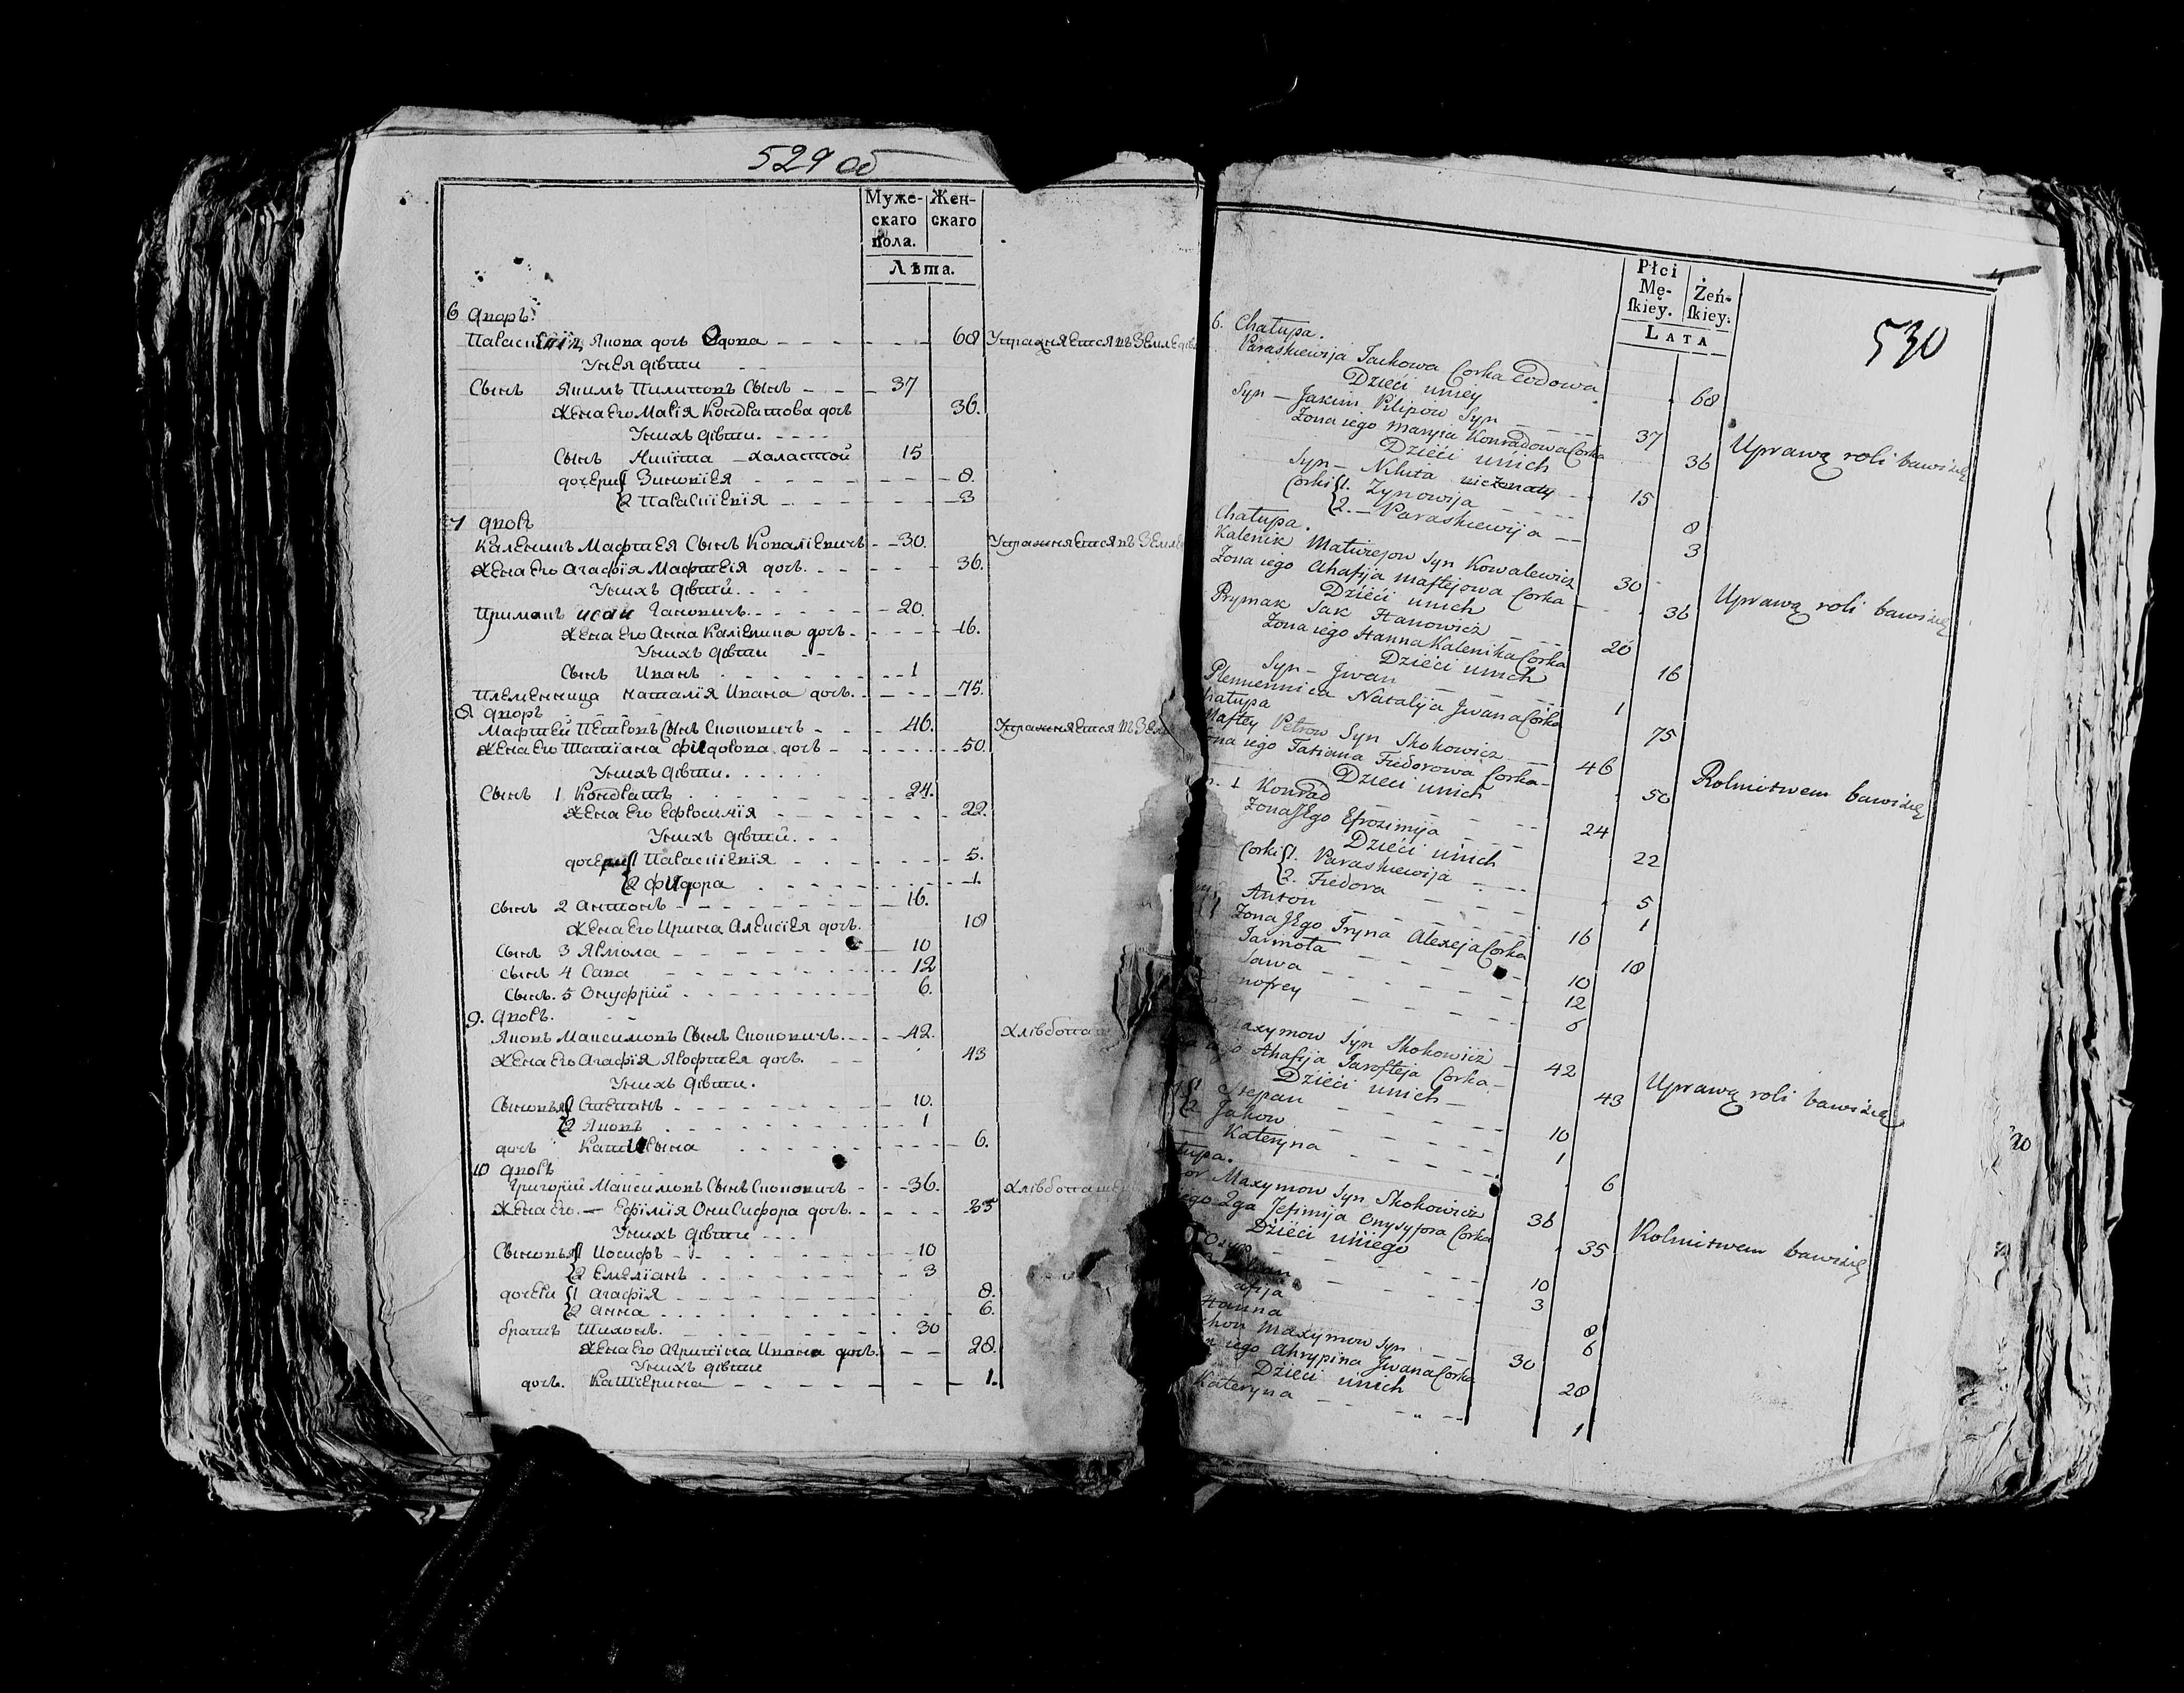 529 об
Муже-
скаго
пола.
Жен-
скаго
Лѣта.
6 дворъ.
Параскевія Якова дочь вдова 68 Упражняется въ Землед
У нея дѣти
Сынъ Якимъ Пилиповъ Сынъ 37
Жена его Марія Кондратова дочь 36.
У нихъ дѣти.
Сынъ Никита халастой 15
дочери 1 Зиновіея 8.
2 Параскевія 3
7 дворъ
Каленикъ Мафтея Сынъ Ковалевичъ 30. Упражняется въ Земле
Жена его Агафія Мафтеія дочь. 36.
У нихъ дѣтй.
Примакъ исак Гановичъ. 20.
Жена его Анна Каленика дочь 16.
У нихъ дѣти
Сынъ Иванъ 1
Племенница наталія Ивана дочь. 75.
8 дворъ
Мафтей Петровъ Сынъ Скоковичъ 46. Упражняется въ Зем
Жена его Татіана фидорова дочь 50.
У нихъ дѣти.
Сынъ 1 Кондратъ 24.
Жена его Ефросимія 22.
У нихъ дѣтй.
дочери 1 Параскевія 5.
2 фидора 1.
Сынъ 2 Антонъ 16.
Жена его Ирина Алексіея дочь. 18
Сынъ 3 Ярмола 10
Сынъ 4 Сава 12
Сынъ. 5 Онуфрій 6.
9. дворъ.
Яковъ Максимовъ Сынъ Скоковичъ. 42. Хлѣбопа
Жена его Агафія Ярофтея дочь. 43
У нихъ дѣти.
Сыновья 1 Степанъ 10.
2 Яковъ 1
дочь Катерына 6.
10 дворъ
Григорій Максимовъ Сынъ Скоковичъ 36. Хлѣбопаше
Жена его. — Ефімія Онисифора дочь. 35
У нихъ дѣти
Сыновья 1 Иосифъ 10
2 Емеліанъ 3
дочери 1 Агафія 8.
2 анна 6.
братъ Тихонъ. 30
Жена его Агрипина Ивана дочь. 28.
У нихъ дѣти
дочь. Катерина 1.
530
Płci
Mę-
ſkiey.
Żeń-
ſkiey.
LATA
6. Chałupa.
Paraskiewija Jackowa Corka Wdowa 68
Dzieci uniey
Syn — Jakim Pilipow Syn 37 Uprawą roli bawi się
Zona iego Maryia Konradowa Corka 36
Dzieci unich
Syn — Nikita nieżonaty 15
Corki 1. Zynowija 8
2. — Paraskiewija 3
Chałupa.
Kalenik Matwiejow Syn Kowalewicz 30 Uprawą roli bawi się
Zona iego Ahafija Maftejowa Corka 36
Dzieci unich
Prymak Sak Hanowicz 20
Zona iego Hanna Kalenika Corka 16
Dzieci unich
Syn — Jwan 1
Plemiennica Natalija Jwana Corka 75
hałupa
Maftey Petrow Syn Skokowicz 46 Rolnictwem bawi się
ona iego Tatiana Fiedorowa Corka 50
Dzieci unich
1 Konrad 24
Zona Jego Efrozimija 22
Dzieci unich
Corki 1. Paraskiewija 5
2. Fiedora 1
Anton 16
Zona Jego Jryna Alexeja Corka 18
Jarmoła 10
Sawa 12
nofrey 6
Maxymow Syn Skokowicz 42 Uprawą roli bawi się
Ahafija Jarofteja Corka 43
Dzieci unich
1 Stepan 10
2. Jakow 1
Kateryna 6
łupa.
or Maxymow Syn Skokowicz 36 Rolnictwem bawi się
iego 2ga Jefimija Onysyfora Corka 35
Dzieci uniego
Osyp 10
3
afija 8
Hanna 6
chon Maxymow Syn 30
iego Ahrypina Jwana Corka 28
Dzieci unich
Kateryna 1